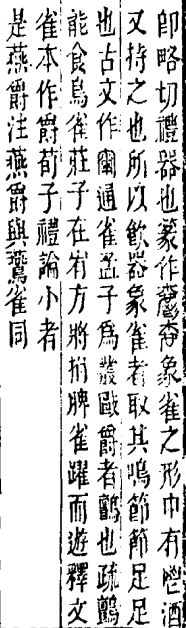 卽略切禮器也篆作𩰥象雀之形巾有鬯酒
又持之也所以飮器象雀者取其鳴節節足足
也古文作𠚪通雀孟子爲叢敺爵者鸇也疏鸇
能食鳥雀莊子在宥方將拊脾雀躍而遊釋文
雀本作爵荀子禮論小者
是燕爵注燕爵與鷰雀同